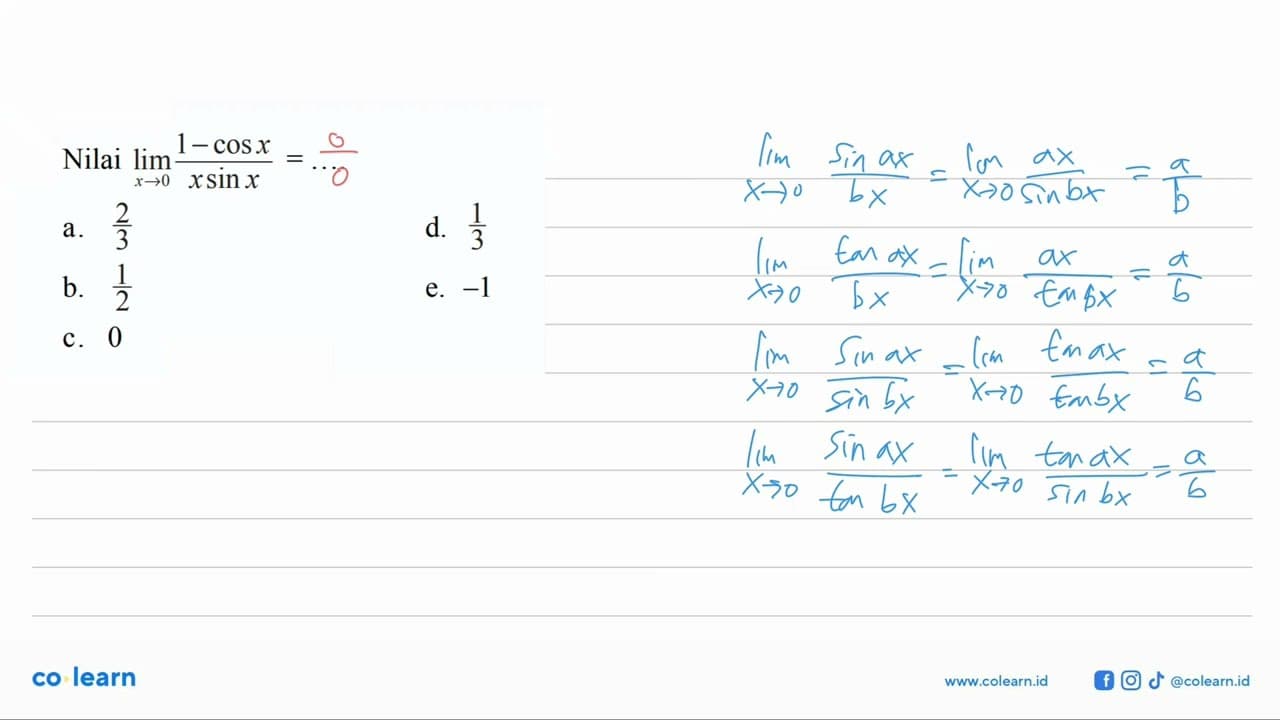 Nilai lim x→0 (1 − cos x)/(x sin x) = ... 0/0
a. 2/3
d. 1/3
b. 1/2
e. −1
c. 0
lim x→0 sin ax/bx = lim x→0 ax/sin bx = a/b
lim x→0 tan ax/bx = lim x→0 ax/tan bx = a/b
lim x→0 sin ax/sin bx = lim x→0 tan ax/tan bx = a/b
lim x→0 sin ax/tan bx = lim x→0 tan ax/sin bx = a/b
co learn
www.colearn.id
@colearn.id